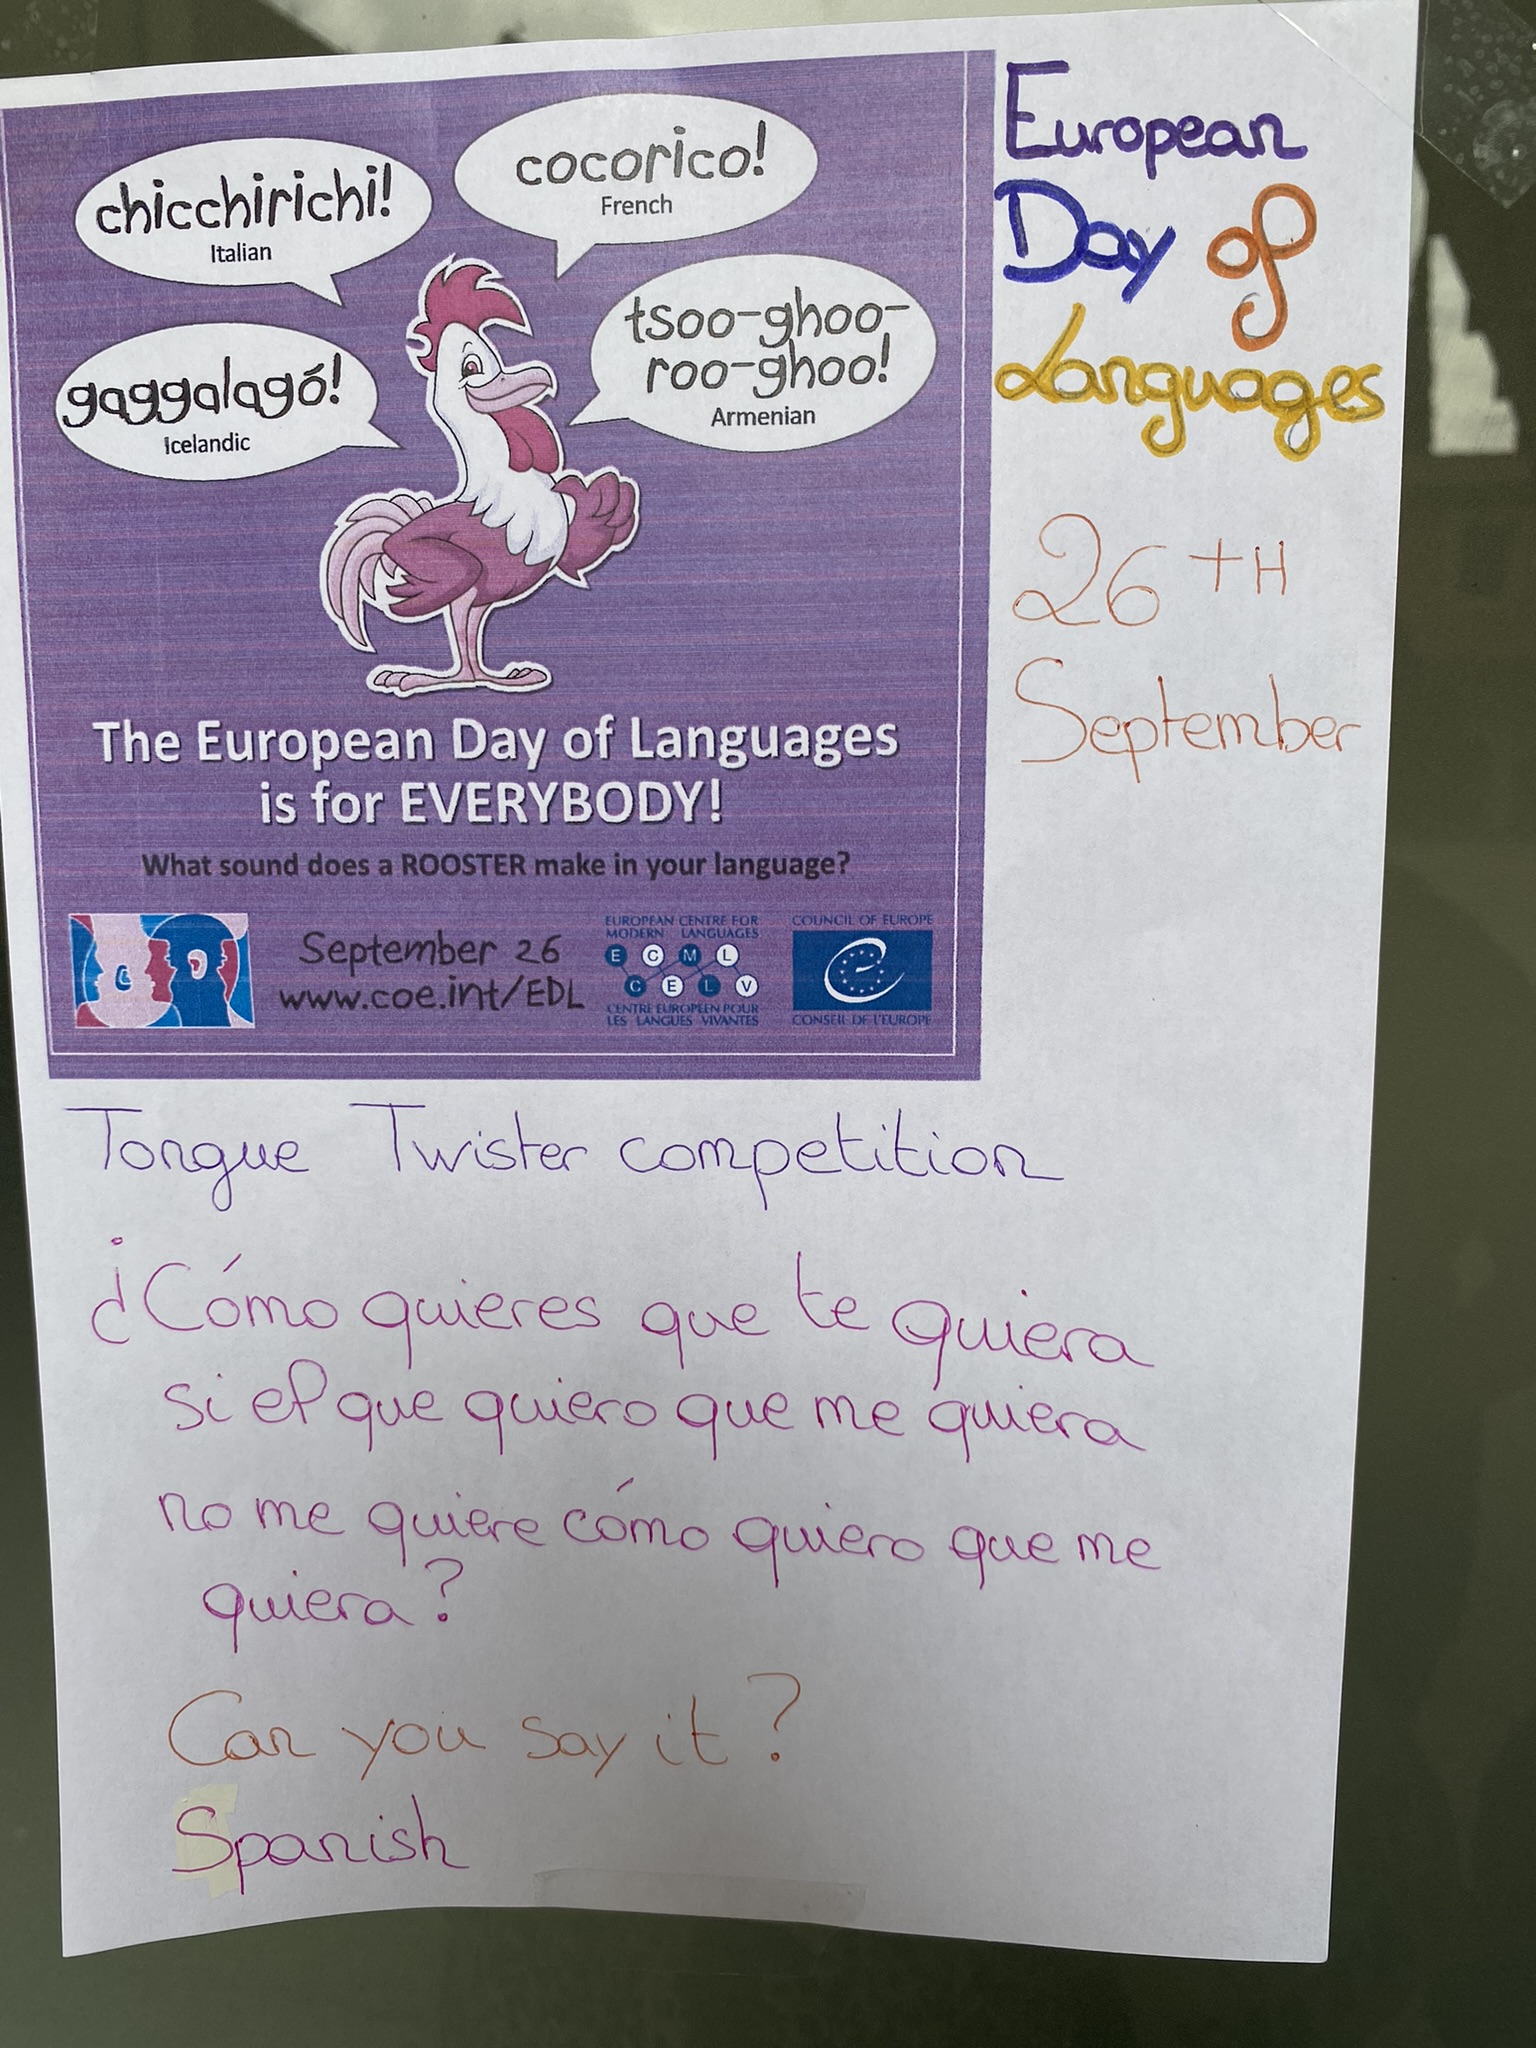 chicchirichi!
Italian
cocorico!
French
gaggalagó!
Icelandic
tsoo-ghoo-
roo-ghoo!
Armenian
The European Day of Languages
is for EVERYBODY!
What sound does a ROOSTER make in your language?
September 26
www.coe.int/EDL
EUROPEAN CENTRE FOR
MODERN LANGUAGES
E C M L
C E L V
CENTRE EUROPEEN POUR
LES LANGUES VIVANTES
COUNCIL OF EUROPE
CONSEIL DE L'EUROPE
European
Day of
Languages
26TH
September
Tongue Twister competition
¿Cómo quieres que te quiera
si el que quiero que me quiera
no me quiere cómo quiero que me
quiera?
Can you say it?
Spanish